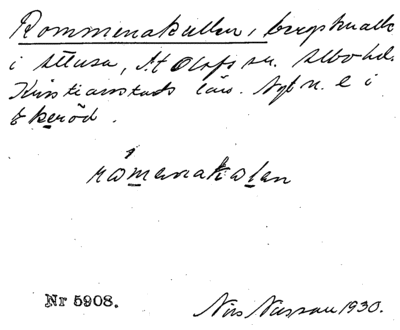 Rommenakullen, bergknalle
iÄllusa, St Olofs sn. Albo hd.
Kristianstads län. Nyt n. e i
Ekeröd.
råmenakolen
Nr 5908.
Nils Nassau 1930.